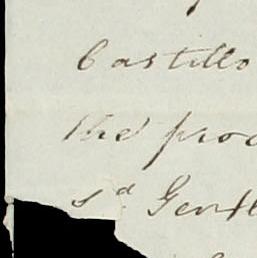 Castillo
the proc
s^d Gentl